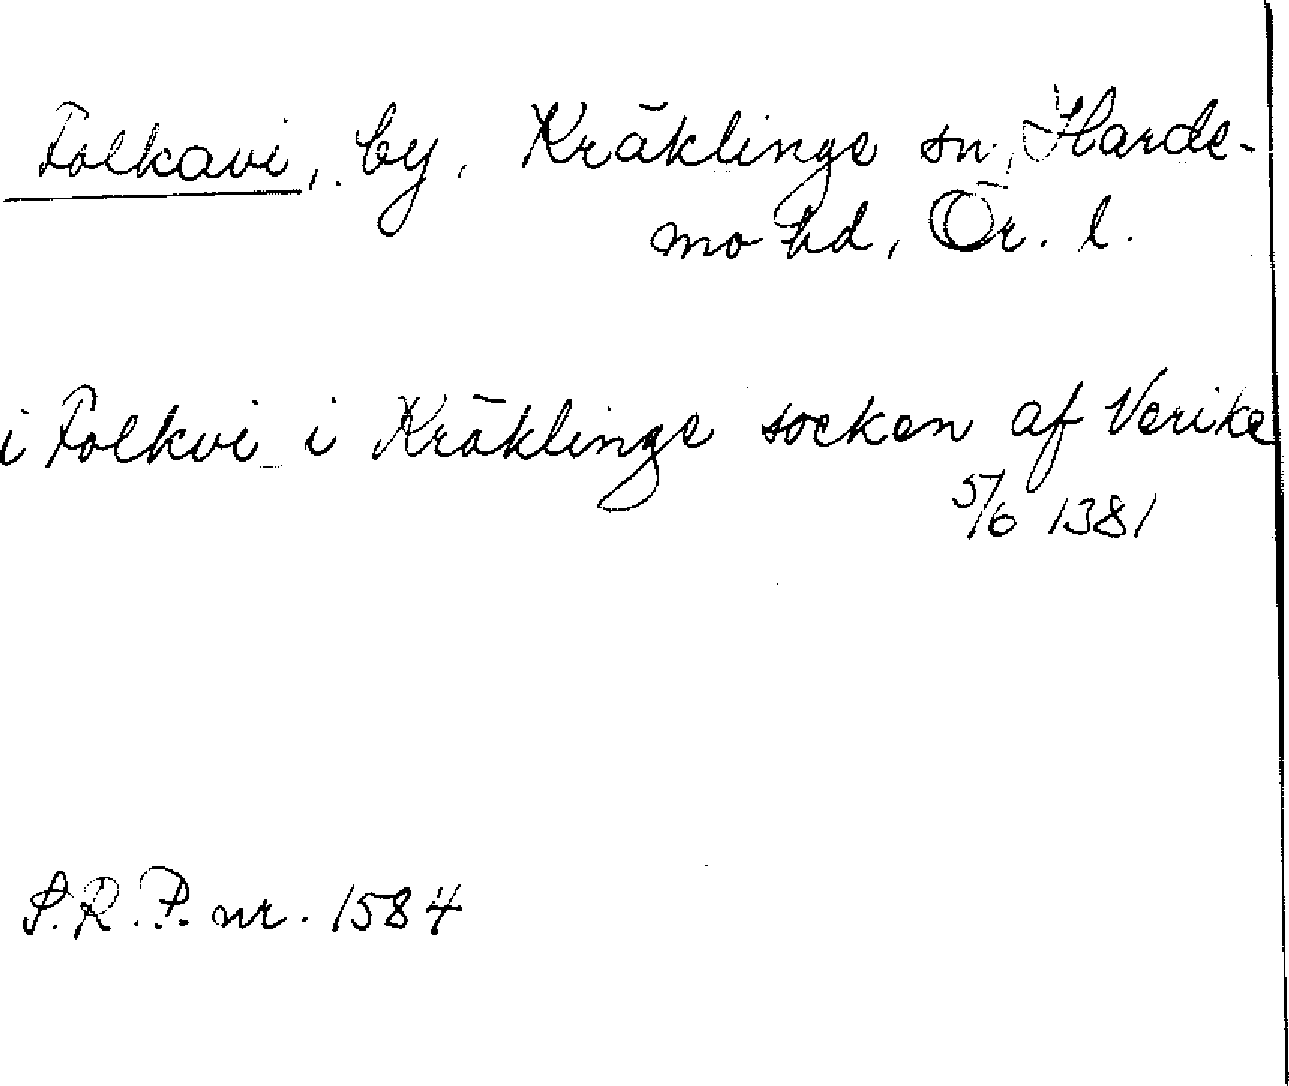 Folkavi, by, Kräklinge sn, Harde-
mo hd, Ör. l.
i Folkvi i Kräklinge socken af Nerike
5/6 1381
S.R.P. nr. 1584